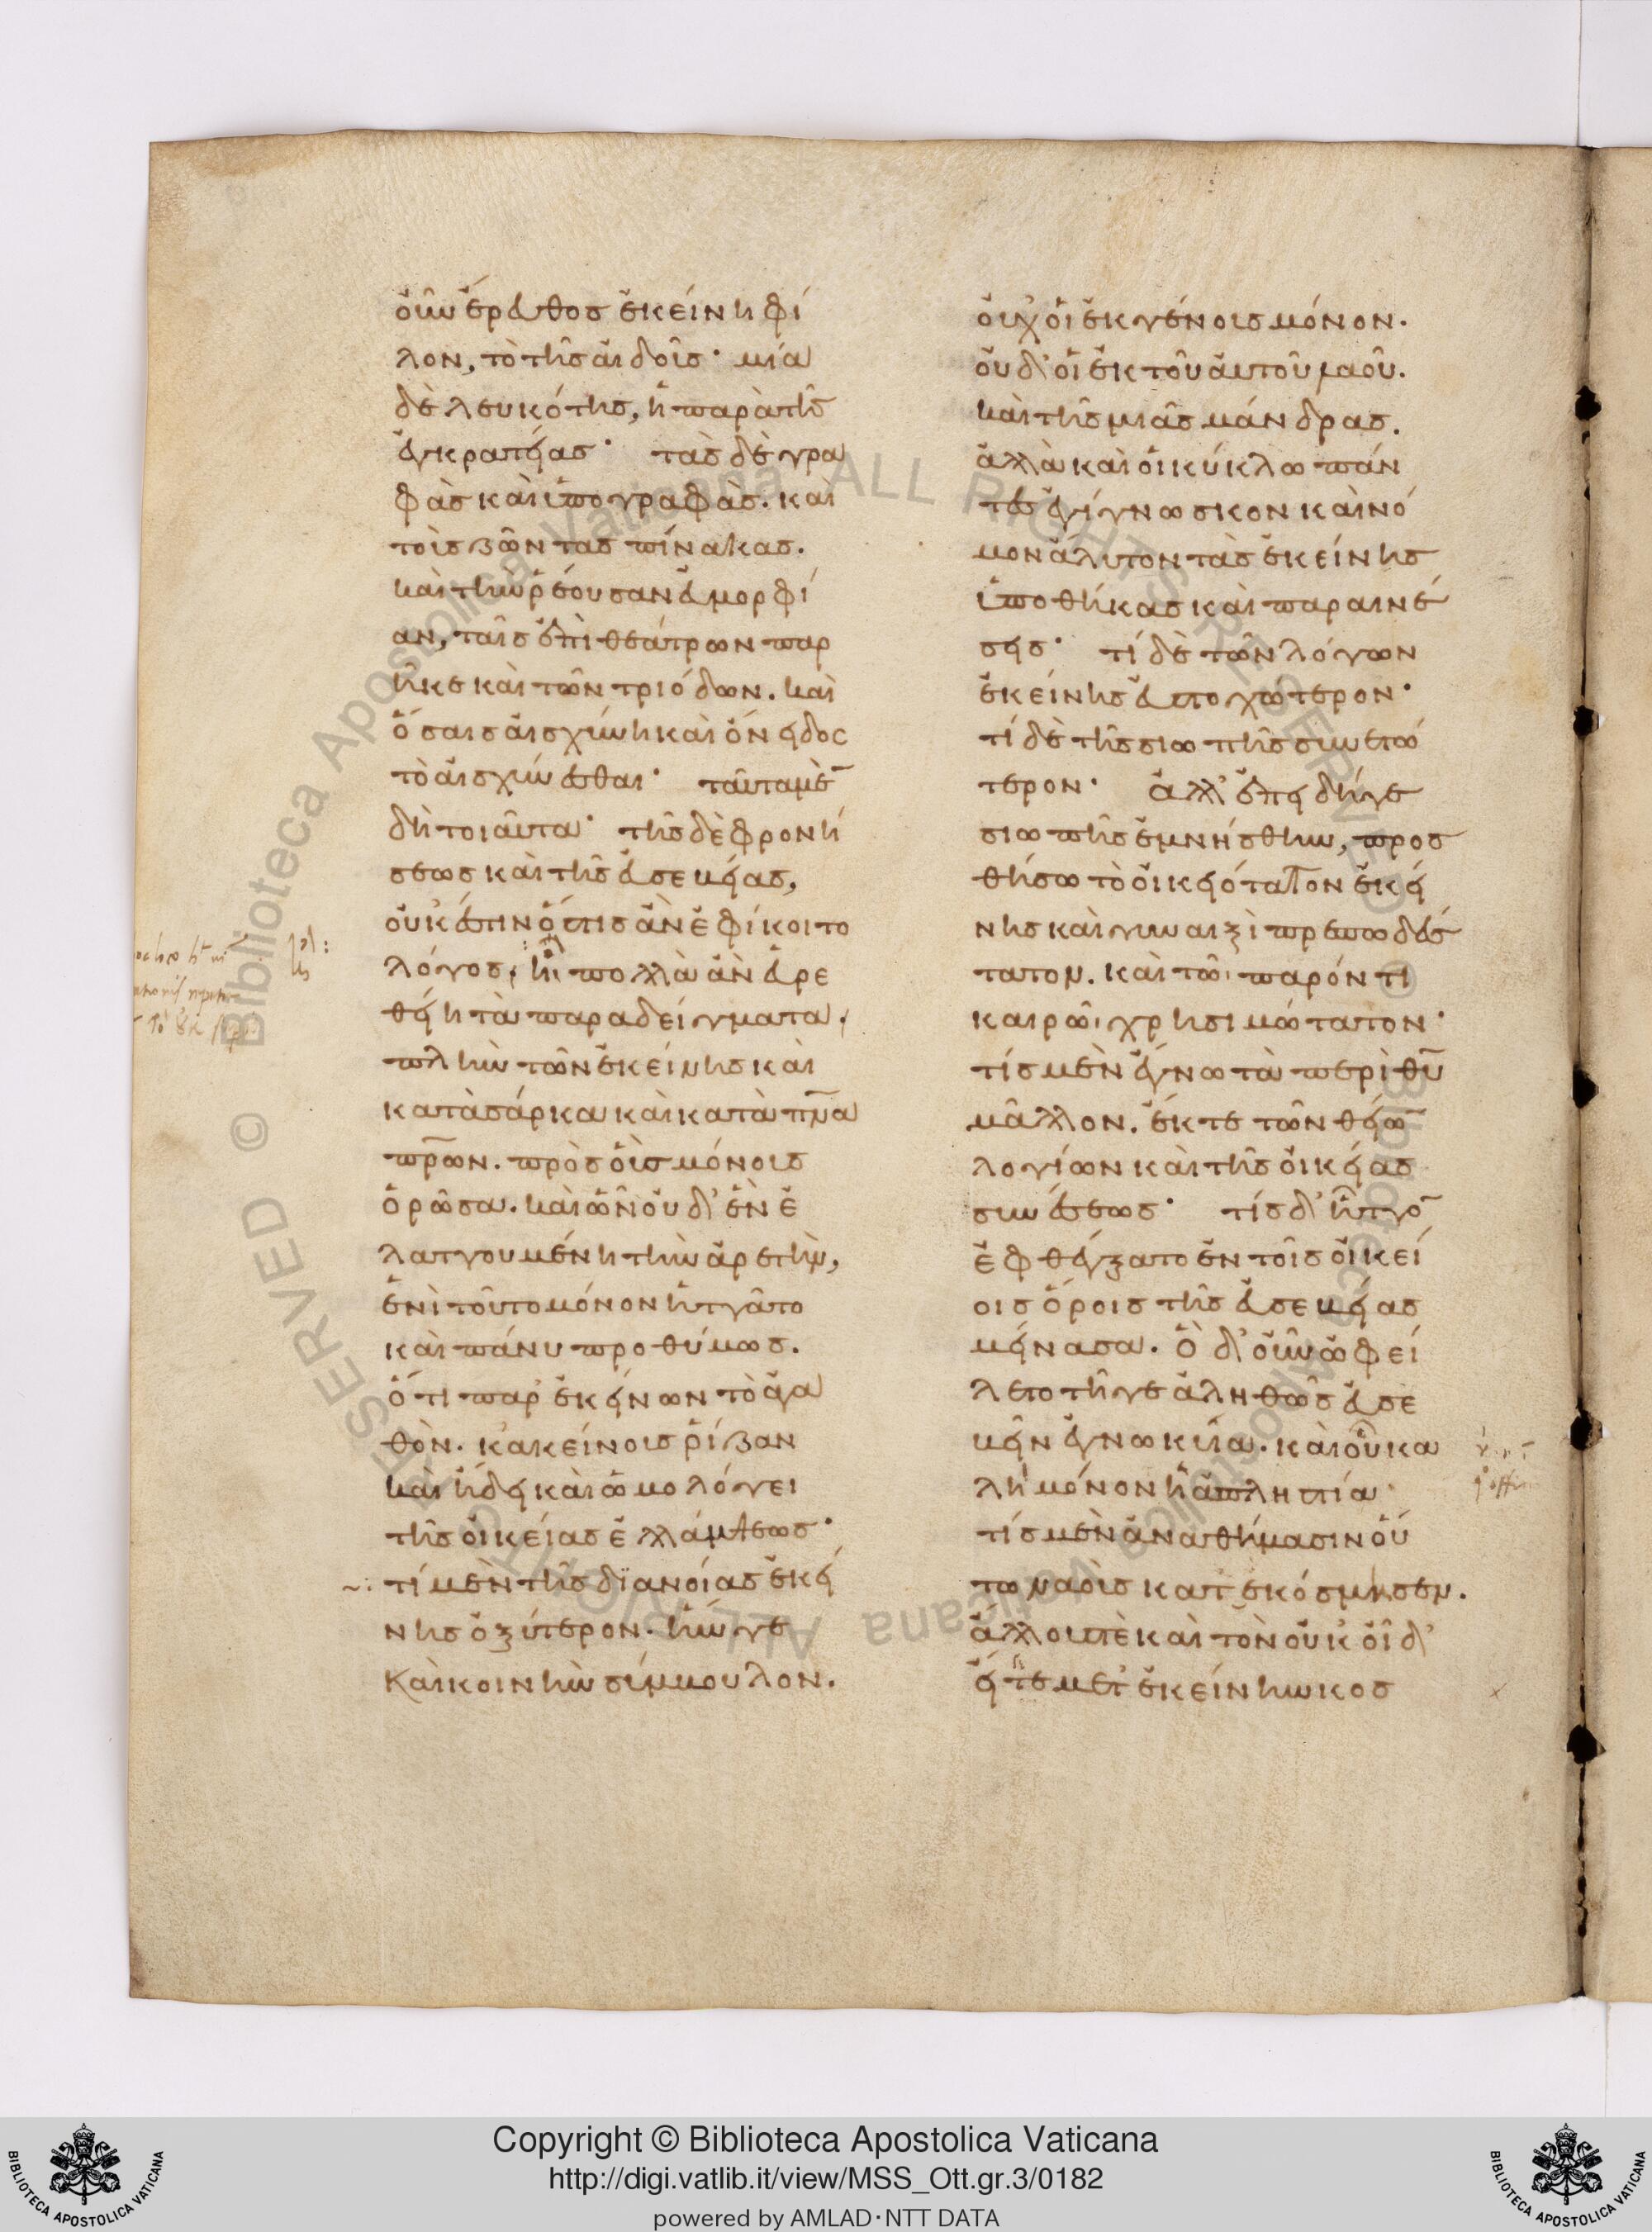 οὖν ἔρευθος ἐκείνηι φί
λον, τὸ τῆς αἰδοῦς· μία
δὲ λευκότης, ἡ παρὰ τῆς
ἐγκρατείας· τὰς δὲ γρα
φὰς καὶ ὑπογραφὰς. καὶ
τοὺς ζῶντας πίνακας.
καὶ τὴν ῥέουσαν εὐμορφί
αν, ταῖς ἐπὶ θεάτρων παρ
ῆκε καὶ τῶν τριόδων. καὶ
ὅσαις αἰσχύνη καὶ ὄνειδος
τὸ αἰσχύνεσθαι· ταῦτα μὲν̄
δὴ τοιαῦτα· τῆς δὲ φρονή
σεως καὶ τῆς εὐσεβείας,
οὐκ ἔστιν ὅστις ἂν ἐφίκοιτο
λόγος, ἢ πολλὰ ἂν εὑρε
θείη τὰ παραδείγματα,
πλὴν τῶν ἐκείνης καὶ
κατὰ σάρκα καὶ κατὰ πν̅α
πρ̅ων. πρὸς οὓς μόνους
ὁρῶσα. καὶ ὧν οὐδ' ἐν ἐ
λαττουμένη τὴν ἀρετὴν,
ἑνὶ τοῦτο μόνον ἡττᾶτο
καὶ πάνυ προθύμως.
ὅτι παρ' ἐκείνων τὸ ἀγα
θὸν. κἀκείνους ῥίζαν
καὶ ἤδει καὶ ὡμολόγει
τῆς οἰκείας ἐλλάμψεως·
τί μὲν τῆς διανοίας ἐκεί
νης ὀξύτερον. ἥν γε
καὶ κοινὴν σύμβουλον.
οὐχ οἱ ἐκ γένους μόνον.
οὐδ' οἱ ἐκ τοῦ αὐτοῦ λαοῦ.
καὶ τῆς μιᾶς μάνδρας.
ἀλλὰ καὶ οἱ κύκλω πάν
τες ἐγίγνωσκον καὶ νό
μον ἄλυτον τὰς ἐκείνης
ὑποθήκας καὶ παραινέ
σεις· τί δὲ τῶν λόγων
ἐκείνης εὐστοχώτερον·
τί δὲ τῆς σιωπῆς συνετώ
τερον· ἀλλ' ἐπειδή γε
σιωπῆς ἐμνήσθην, προσ
θήσω τὸ οἰκειότατον ἐκεί
νης καὶ γυναιξὶ πρεπωδέσ
τατον. καὶ τῶι παρόντι
καιρῶι χρησιμώτατον·
τίς μὲν ἔγνω τὰ περὶ θυ̅
μᾶλλον. ἔκ τε τῶν θείων̄
λογίων καὶ τῆς οἰκείας
συνέσεως· τίς δ' ἧττον̄
ἐφθέγξατο ἐν τοῖς οἰκεί
οις ὅροις τῆς εὐσεβείας
μείνασα. ὃ δ' οὖν ὠφεί
λετο τῆ γε ἀληθῶς εὐσε
βεῖν ἐγνωκυῖα. καὶ οὗ κα
λὴ μόνον ἡ ἀπληστία·
τίς μὲν ἀναθήμασιν οὕ
τω ναοὺς κατεκόσμησεν.
ἄλλους τὲ καὶ τὸν οὐκ οἶδ'
εἴτε μετ' ἐκείνην κοσ
Copyright © Biblioteca Apostolica Vaticana
http://digi.vatlib.it/view/MSS_Ott.gr.3/0182
powered by AMLAD·NTT DATA